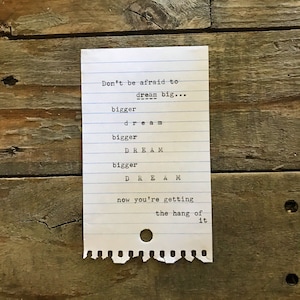 Don't be afraid to
dream big...
bigger
d r e a m
bigger
D R E A M
bigger
D R E A M
now you're getting
the hang of
it